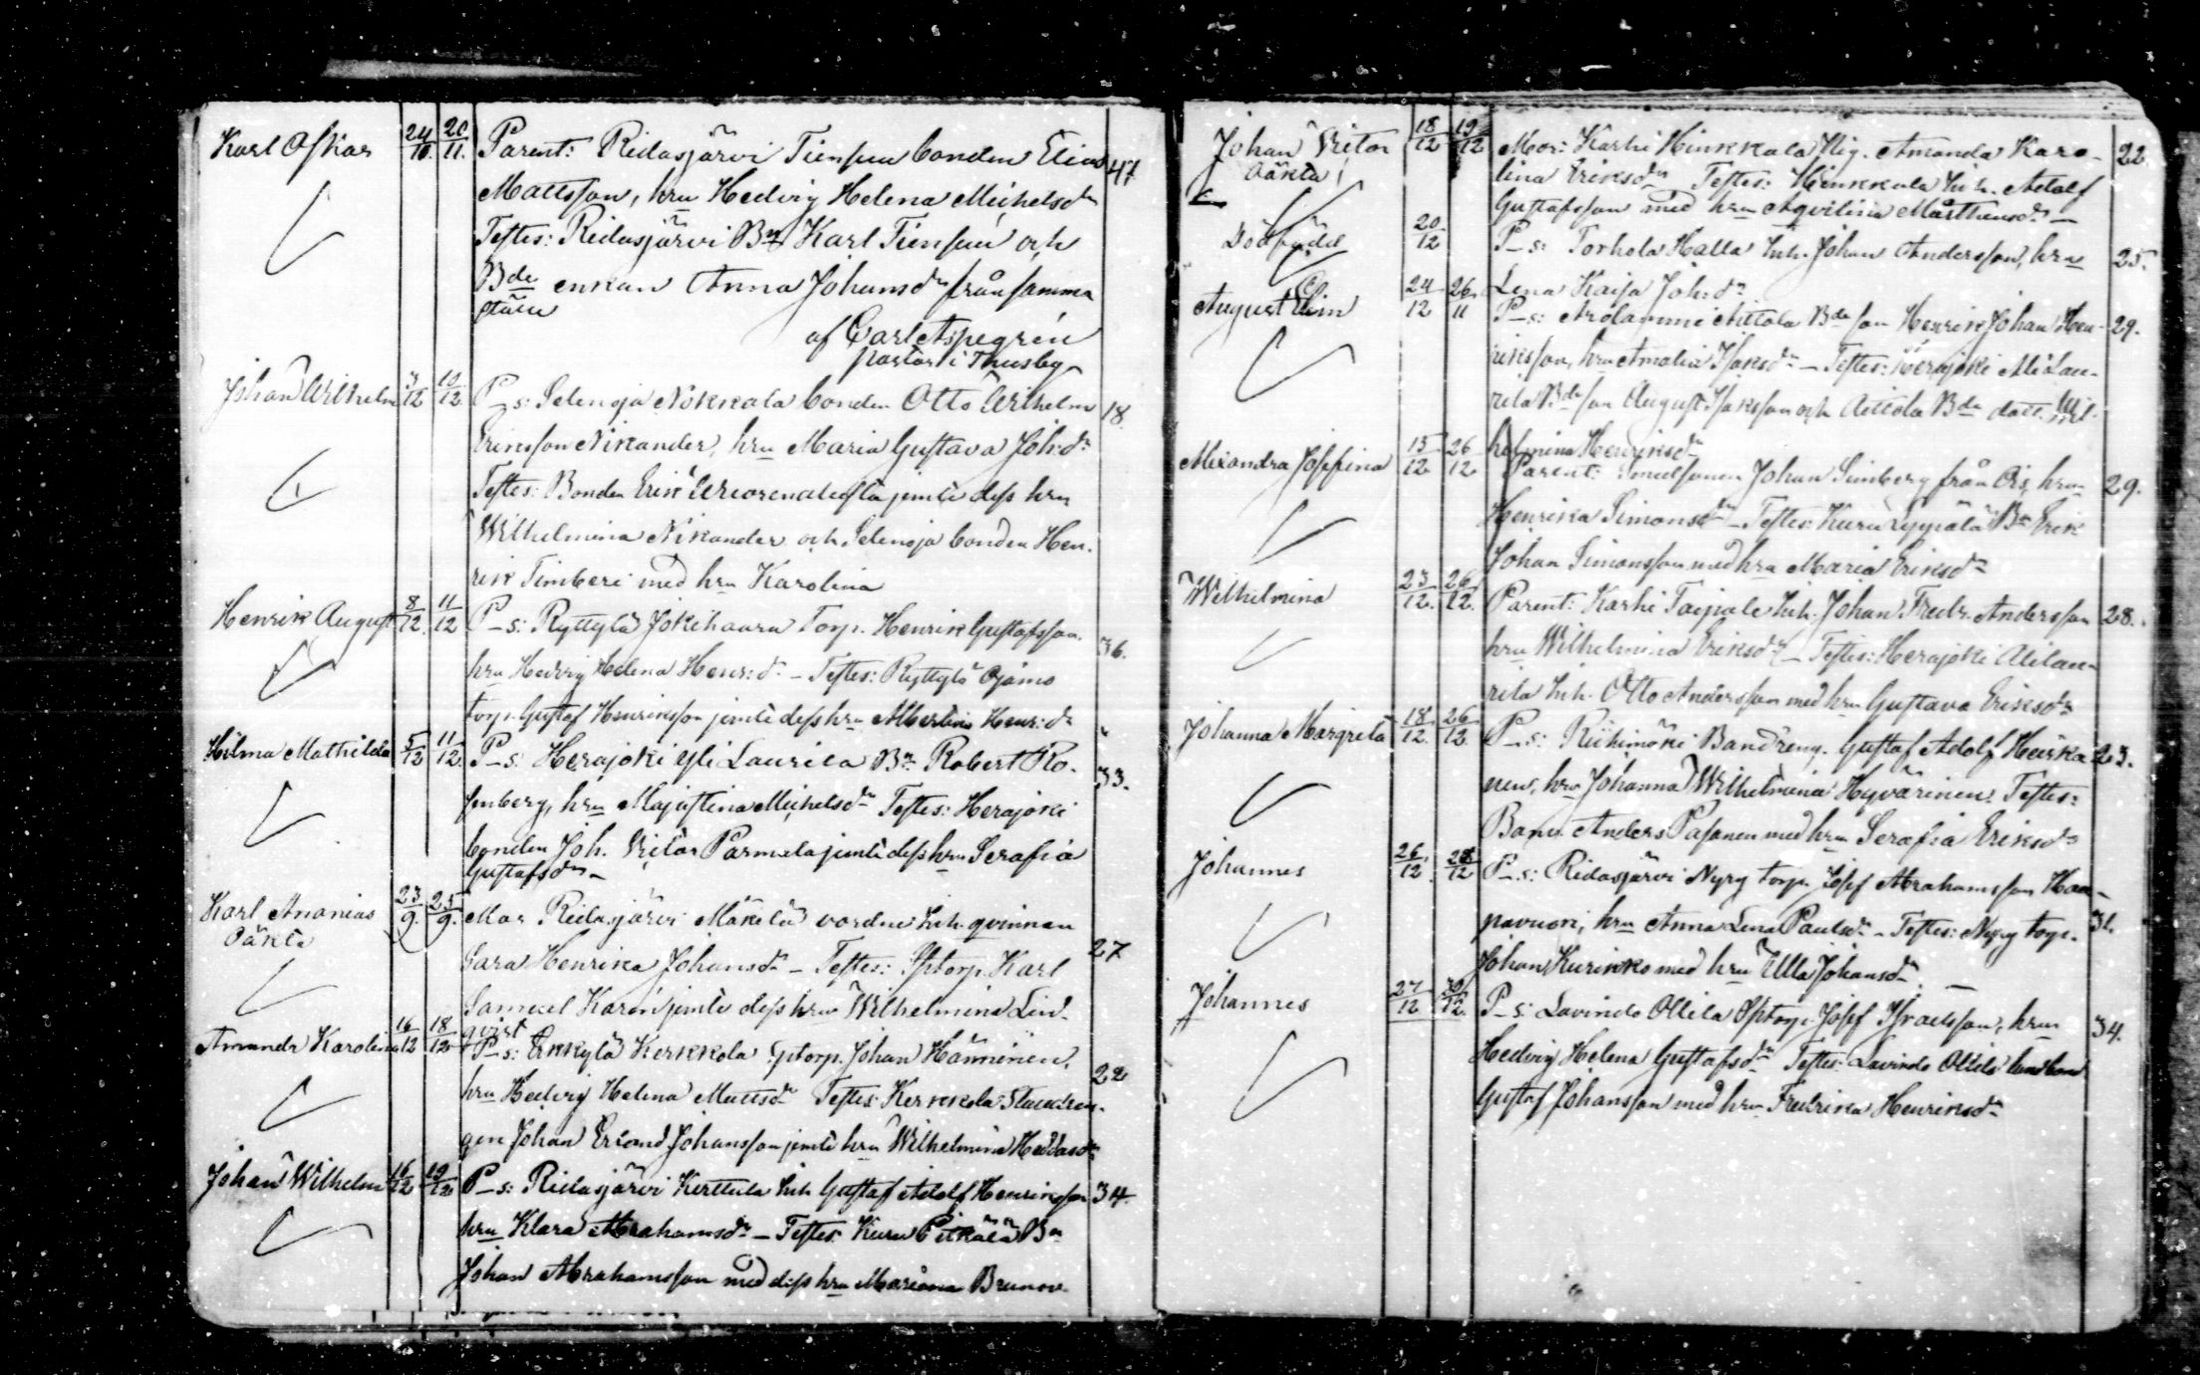 Karl Oskar 24/10. 20/11. Parent: Ridasjärvi Tiensuu bonden Elias 47
Mattsson, hru Hedvig Helena Michelsdr
Testes: Ridasjärvi Bn Karl Tiensuu och
Bde enkan Anna Johansdr från samma
ställe
af Carl Aspegrén
pastor i Thusby
Johan Wilhelm 3/12 10/12 P_s: Selenoja Nökkala bonden Otto Wilhelm 18.
Eriksson Nikander, hru Maria Gustava Joh:dr
Testes: Bonden Erik jemte dess hru
Wilhelmina Nikander och Selenoja bonden Hen-
rik Timberi med hru Karolina
Henrik August 8/12. 11/12 P_s: Ryttylä Jokihaara Torp. Henrik Gustafsson 36.
hru Hedvig Helena Henr:dr – Testes: Ryttylä Ojamo
torp. Gustaf Henriksson jemte dess hru Albertina Henr:dr
Hilma Mathilda 5/12 11/12. P_s: Herajoki Yli Laurila Bn Robert Ro- 33.
senberg, hru Majastina Michelsdr Testes: Herajoki
bonden Joh. Victor Parmala jemte dess hru Serafia
Gustafsdr –
Karl Ananias 23/9. 25/9. Mor Ridasjärvi Mäkelä vordne Inh. qvinnan 27
Oäkta
Sara Henrika Johansdr – Testes: Sptorp. Karl
Samuel Karén jemte dess hru Wilhelmina Lind-
qvist
Amanda Karolina 16/12 18/12 P_s: Erkkylä Kerkkola Sptorp. Johan Hänninen, 22
hru Hedvig Helena Mattsdr Testes: Kerkkola Stalldren-
gen Johan Erland Johansson jemte hru Wilhelmina
Johan Wilhelm 16/12 19/12 P_s: Ridasjärvi Kerttula Inh Gustaf Adolf Henriksson 34.
hru Klara Abrahamsdr – Testes: Kuru Pitkälä Bn
Johan Abrahamsson med dess hru Mariana Brunow.
Johan Victor 18/12 19/12 Mor: Karhi Hinkkala Pig. Amanda Karo- 22.
Oäkta
lina Eriksdr Testes: Hinkkala Inh. Adolf
Gustafsson med hru Aqvilina Mårthensdr –
Dödfödd 20/12 P_s: Torhola Halla Inh. Johan Andersson, hru 25.
Lena Kaisa Joh:dr
August Elim 24/12 26/11 P_s: Arolammi Aittola Bde son Henrik Johan Hen- 29.
riksson, hru Amalia Isaksdr – Testes: Herajoki Ali Lau-
rila Bde son August Isaksson och Aittola Bde dott. Wil-
helmina Henriksdr
Alexandra Josefina 15/12 26/12 Parent: Smedsonen Johan Simberg från Ois, hru 29.
Henrika Simonsdr – Testes: Kuru Bn Erik
Johan Simonsson med hru Maria Eriksdr
Wilhelmina 23/12. 26/12. Parent: Karhi Taipale Inh. Johan Fredr. Andersson 28.
hru Wilhelmina Eriksdr – Testes: Herajoki Alilau-
rila Inh. Otto Andersson med hru Gustava Eriksdr
Johanna Margreta 18/12. 26/12. P_s: Riihimäki Bandräng. Gustaf Adolf Heiska- 23.
nen, hru Johanna Wilhelmina Hyvärinen. Testes:
Banv. Anders Pasanen med hru Serafia Eriksdr
Johannes 26/12. 28/12 P_s: Ridasjärvi Nyry torp. Josef Abrahamsson Haa- 31.
pavuori, hru Anna Lena Paulsdr – Testes: Nyry torp.
Johan Kurikko med hru Ulla Johansdr. –
Johannes 27/12 30/12. P_s: Lavindo Ollila Sptorp. Josef Israelsson, hru 34.
Hedvig Helena Gustafsdr Testes: Lavindo Ollila landbond
Gustaf Johansson med hru Fredrika Henriksdr